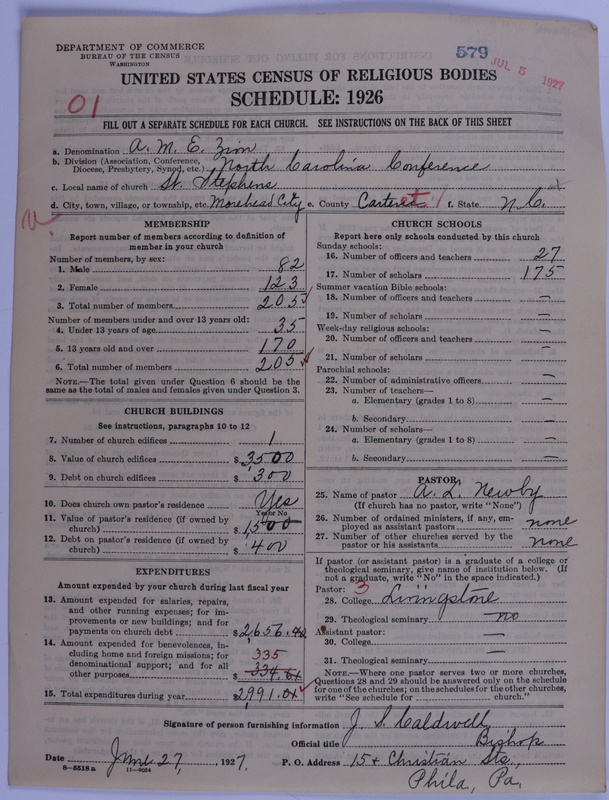 DEPARTMENT OF COMMERCE
BUREAU OF THE CENSUS
WASHINGTON
579
JUL 5 1927
UNITED STATES CENSUS OF RELIGIOUS BODIES
01
SCHEDULE: 1926
FILL OUT A SEPARATE SCHEDULE FOR EACH CHURCH. SEE INSTRUCTIONS ON THE BACK OF THIS SHEET
a. Denomination A. M. E. Zion
b. Division (Association, Conference, Diocese, Presbytery, Synod, etc.) North Carolina Conference
c. Local name of church St. Stephens
d. City, town, village, or township, etc. Morehead City e. County Carteret f. State N. C.
MEMBERSHIP
Report number of members according to definition of
member in your church
Number of members, by sex:
1. Male 82
2. Female 123
3. Total number of members 205
Number of members under and over 13 years old:
4. Under 13 years of age 35
5. 13 years old and over 170
6. Total number of members 205
NOTE.—The total given under Question 6 should be
the same as the total of males and females given under Question 3.
CHURCH BUILDINGS
See instructions, paragraphs 10 to 12
7. Number of church edifices 1
8. Value of church edifices $3500
9. Debt on church edifices $300
10. Does church own pastor's residence Yes
Yes or No
11. Value of pastor's residence (if owned by
church) $1500
12. Debt on pastor's residence (if owned by
church) $400
EXPENDITURES
Amount expended by your church during last fiscal year
13. Amount expended for salaries, repairs,
and other running expenses; for im-
provements or new buildings; and for
payments on church debt $2,656.40
14. Amount expended for benevolences, in-
cluding home and foreign missions; for 335
denominational support; and for all
other purposes $334.61
15. Total expenditures during year $2991.01
CHURCH SCHOOLS
Report here only schools conducted by this church
Sunday schools:
16. Number of officers and teachers 27
17. Number of scholars 175
Summer vacation Bible schools:
18. Number of officers and teachers —
19. Number of scholars —
Week-day religious schools:
20. Number of officers and teachers —
21. Number of scholars —
Parochial schools:
22. Number of administrative officers —
23. Number of teachers—
a. Elementary (grades 1 to 8) —
b. Secondary —
24. Number of scholars—
a. Elementary (grades 1 to 8) —
b. Secondary —
PASTOR
25. Name of pastor A. L. Newby
(If church has no pastor, write "None")
26. Number of ordained ministers, if any, em-
ployed as assistant pastors none
27. Number of other churches served by the
pastor or his assistants none
If pastor (or assistant pastor) is a graduate of a college or
theological seminary, give name of institution below. (If
not a graduate, write "No" in the space indicated.)
Pastor: 3
28. College Livingstone
29. Theological seminary no
Assistant pastor:
30. College —
31. Theological seminary —
NOTE.—Where one pastor serves two or more churches,
Questions 28 and 29 should be answered only on the schedule
for one of the churches; on the schedules for the other churches,
write "See schedule for church."
Signature of person furnishing information J. S. Caldwell
Official title Bishop
Date June 27, 1927. P. O. Address 15 & Christian Sts.,
8—5518 a 11—9054
Phila, Pa.